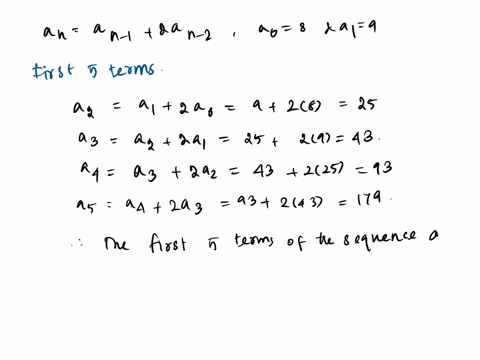 aₙ = aₙ₋₁ + 2aₙ₋₂ , a₀ = 8 & a₁ = 9
First 5 terms.
a₂ = a₁ + 2a₀ = 9 + 2(8) = 25
a₃ = a₂ + 2a₁ = 25 + 2(9) = 43.
a₄ = a₃ + 2a₂ = 43 + 2(25) = 93
a₅ = a₄ + 2a₃ = 93 + 2(43) = 179.
∴ The first 5 terms of the sequence a